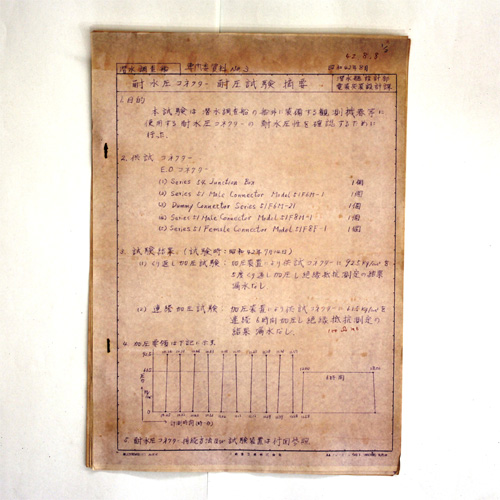 42.8.8
潜水調査船
専門委資料 No.3
昭和42年8月
潜水艦設計部
電気艤装設計課
耐水圧コネクター 耐圧試験 摘要
1. 目的
本試験は潜水調査船の船外に装備する観測機器等に
使用する耐水圧コネクターの耐水圧性を確認するために
行う。
2. 供試コネクター
E.O コネクター
(1) Series 54 Junction Box 1個
(2) Series 51 Male Connector Model 51F6M-1 1個
(3) Dummy Connector Series 51F6M-21 1個
(4) Series 51 Male Connector Model 51F8M-1 1個
(5) Series 51 Female Connector Model 51F8F-1 1個
3. 試験結果 (試験時:昭和42年7月12日)
(1) くり返し加圧試験: 加圧装置により供試コネクターに 925 kg/cm² を
5度くり返し加圧し絶縁抵抗測定の結果
漏水なし。
(2) 連続加圧試験: 加圧装置により供試コネクターに 615 kg/cm² を
連続 6時間加圧し絶縁抵抗測定の
結果 漏水なし。
4. 加圧要領は下記に示す
計測時間(時-分)
6時間
5. 耐水圧コネクター 試験装置は別図参照